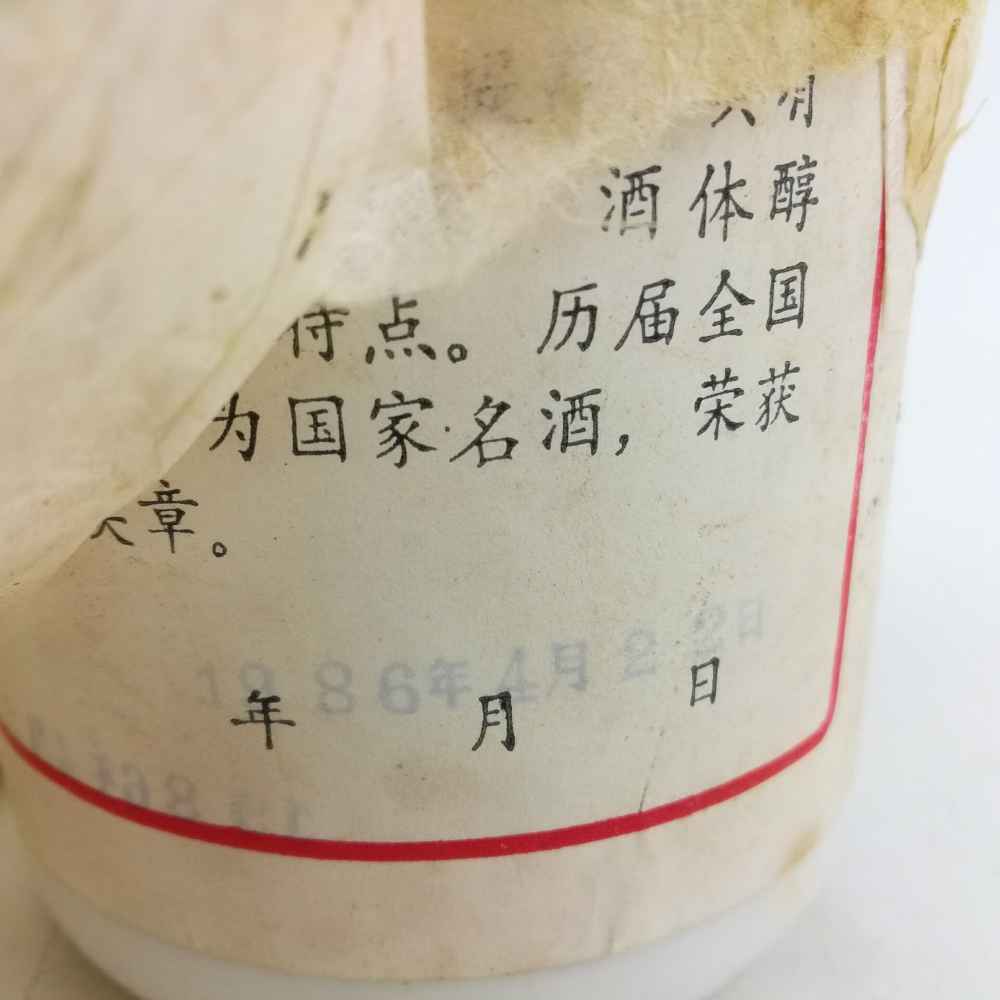 酒体醇
特点。历届全国
为国家名酒，荣获
章。
1986年4月22日
年 月 日